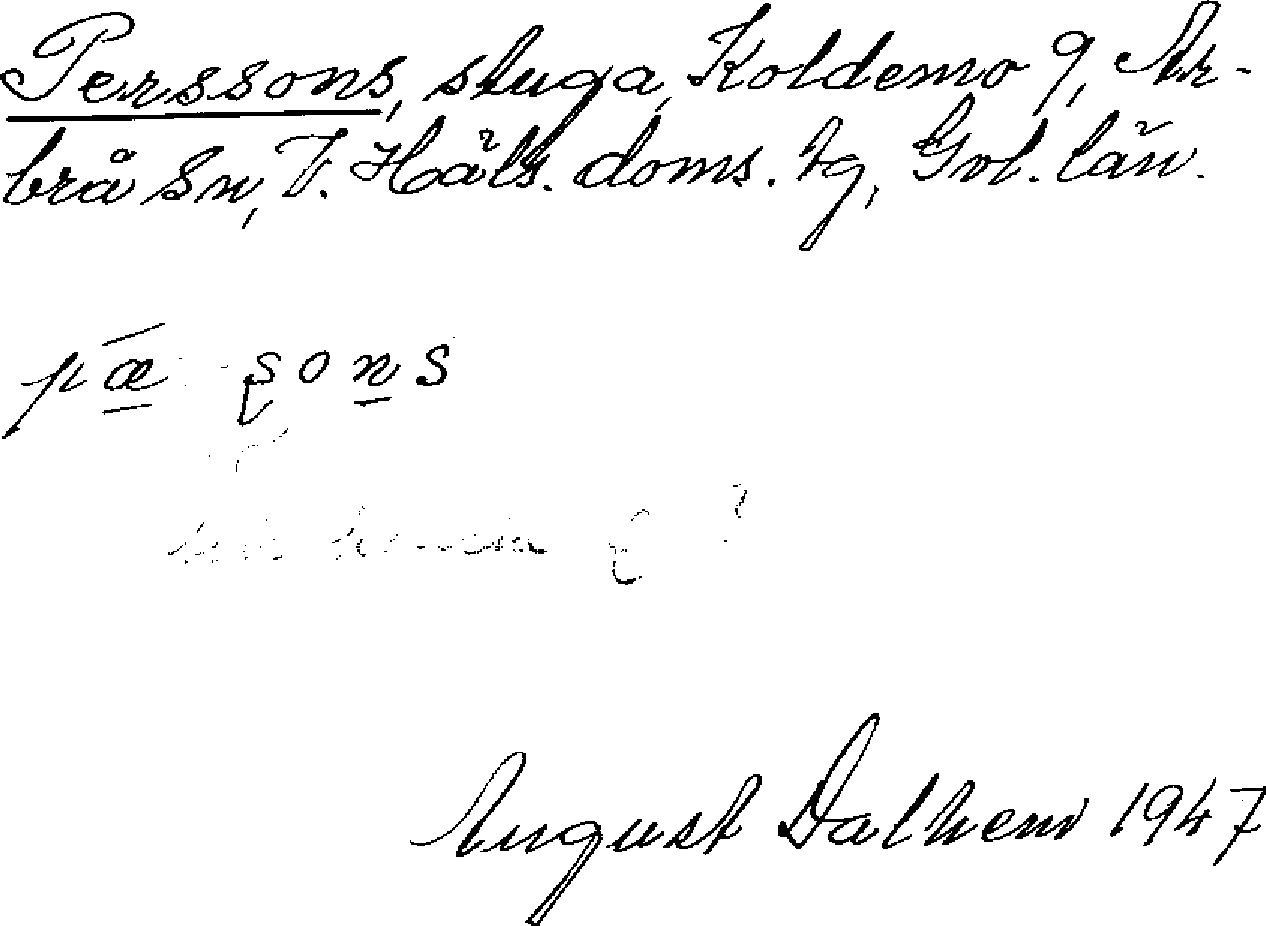 Perssons, stuga, Koldemo 9, Ar-
brå Sn, V. Häls. doms. tg, Gvl. län.
pæ sons
August Dalhem 1947